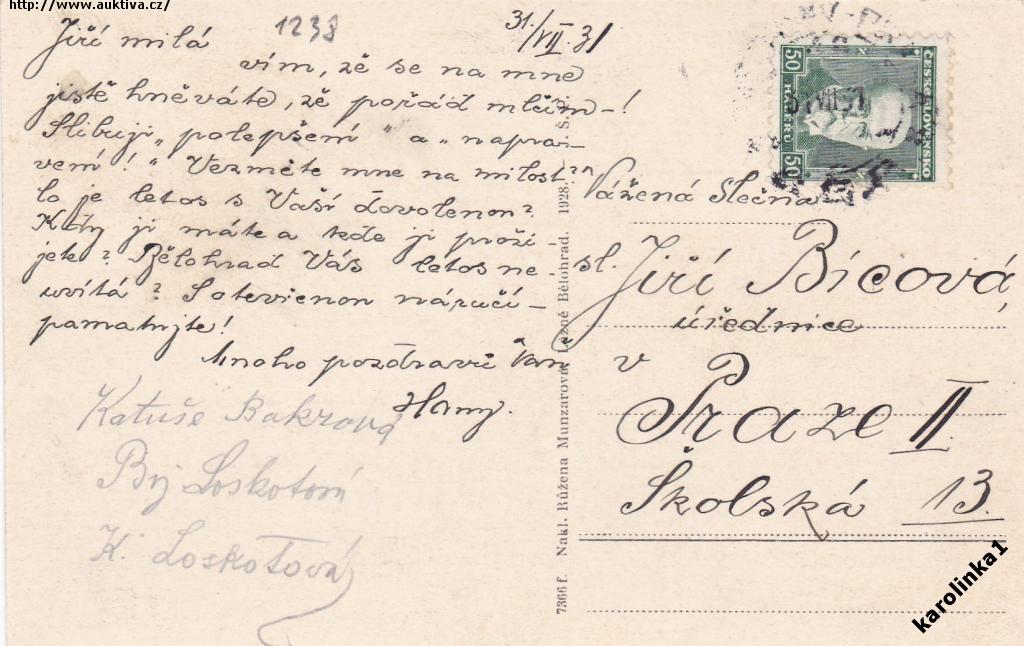 http://www.auktiva.cz/
1238
31./VII.31
Jiří milá
vím, zě se na mne
jistě hněváte, zě pořád mlčím-!
Slibuji „polepšení“ a „napra-
vení!“ Vezměte mne na milost
lo je letos s Vaší dovolenou?
Kdy ji máte a kde ji proži-
jete? Bělohrad Vás letos ne-
uvítá? S otevřenou náručí-
pamatujte!
Mnoho pozdravů Vám
Hany.
Katuše
Loskotová
K. Loskotová
7366 f. Nakl. Růžena Munzarová, Lázně Bělohrad. 1928.
ČESKOSLOVENSKO
50 HALÉŘŮ 50
VII.31
Vážená Slečna
sl. Jiří Bícová,
úřednice
v
Praze II
Školská 13.
karolinka1